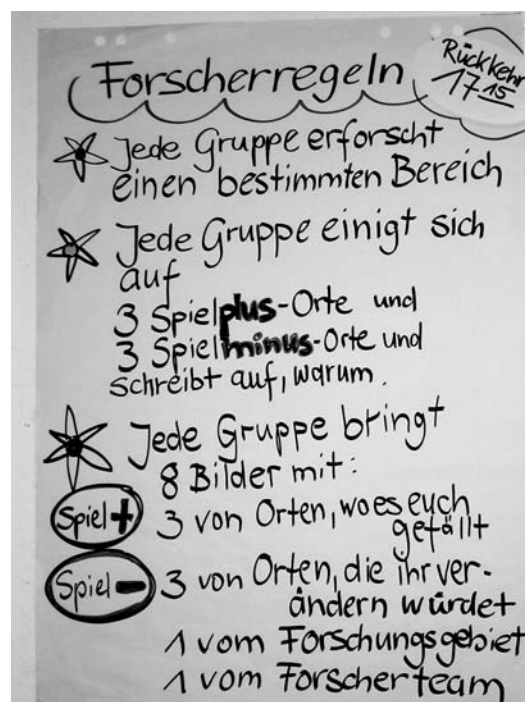 Forscherregeln
Rückkehr
17 15
Jede Gruppe erforscht
einen bestimmten Bereich
Jede Gruppe einigt sich
auf
3 Spielplus-Orte und
3 Spielminus-Orte und
schreibt auf, warum.
Jede Gruppe bringt
8 Bilder mit:
Spiel + 3 von Orten, wo es euch
gefällt
Spiel - 3 von Orten, die ihr ver-
ändern würdet
1 vom Forschungsgebiet
1 vom Forscherteam